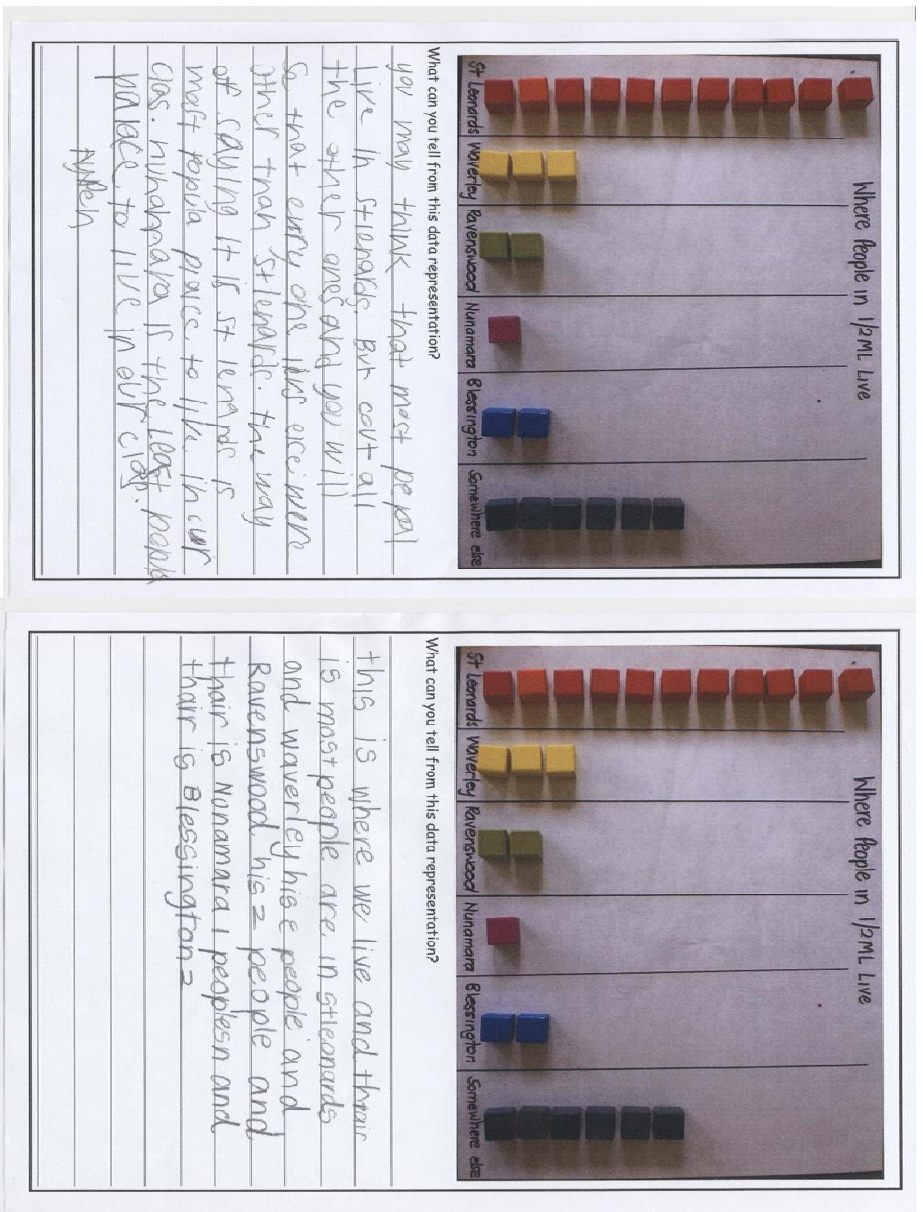 Where People in 1/2ML Live
St Leonards Waverley Ravenswood Nunamara Blessington Somewhere else
What can you tell from this data representation?
you may think that most pepal
Live in stlenards. But cout all
the other ones and you will
So that evry one livs else were
other than stlenards. the way
of saying it is st lenards is
most popula place to live in our
clas. is the least popula
palace to live in our clas.
Where People in 1/2ML Live
St Leonards Waverley Ravenswood Nunamara Blessington Somewhere else
What can you tell from this data representation?
this is where we live and thair
is most people are in stleonards
and waverley his 3 people and
Ravenswood his 2 people and
thair is Nonamara 1 peoplesn and
thair is Blessington 2